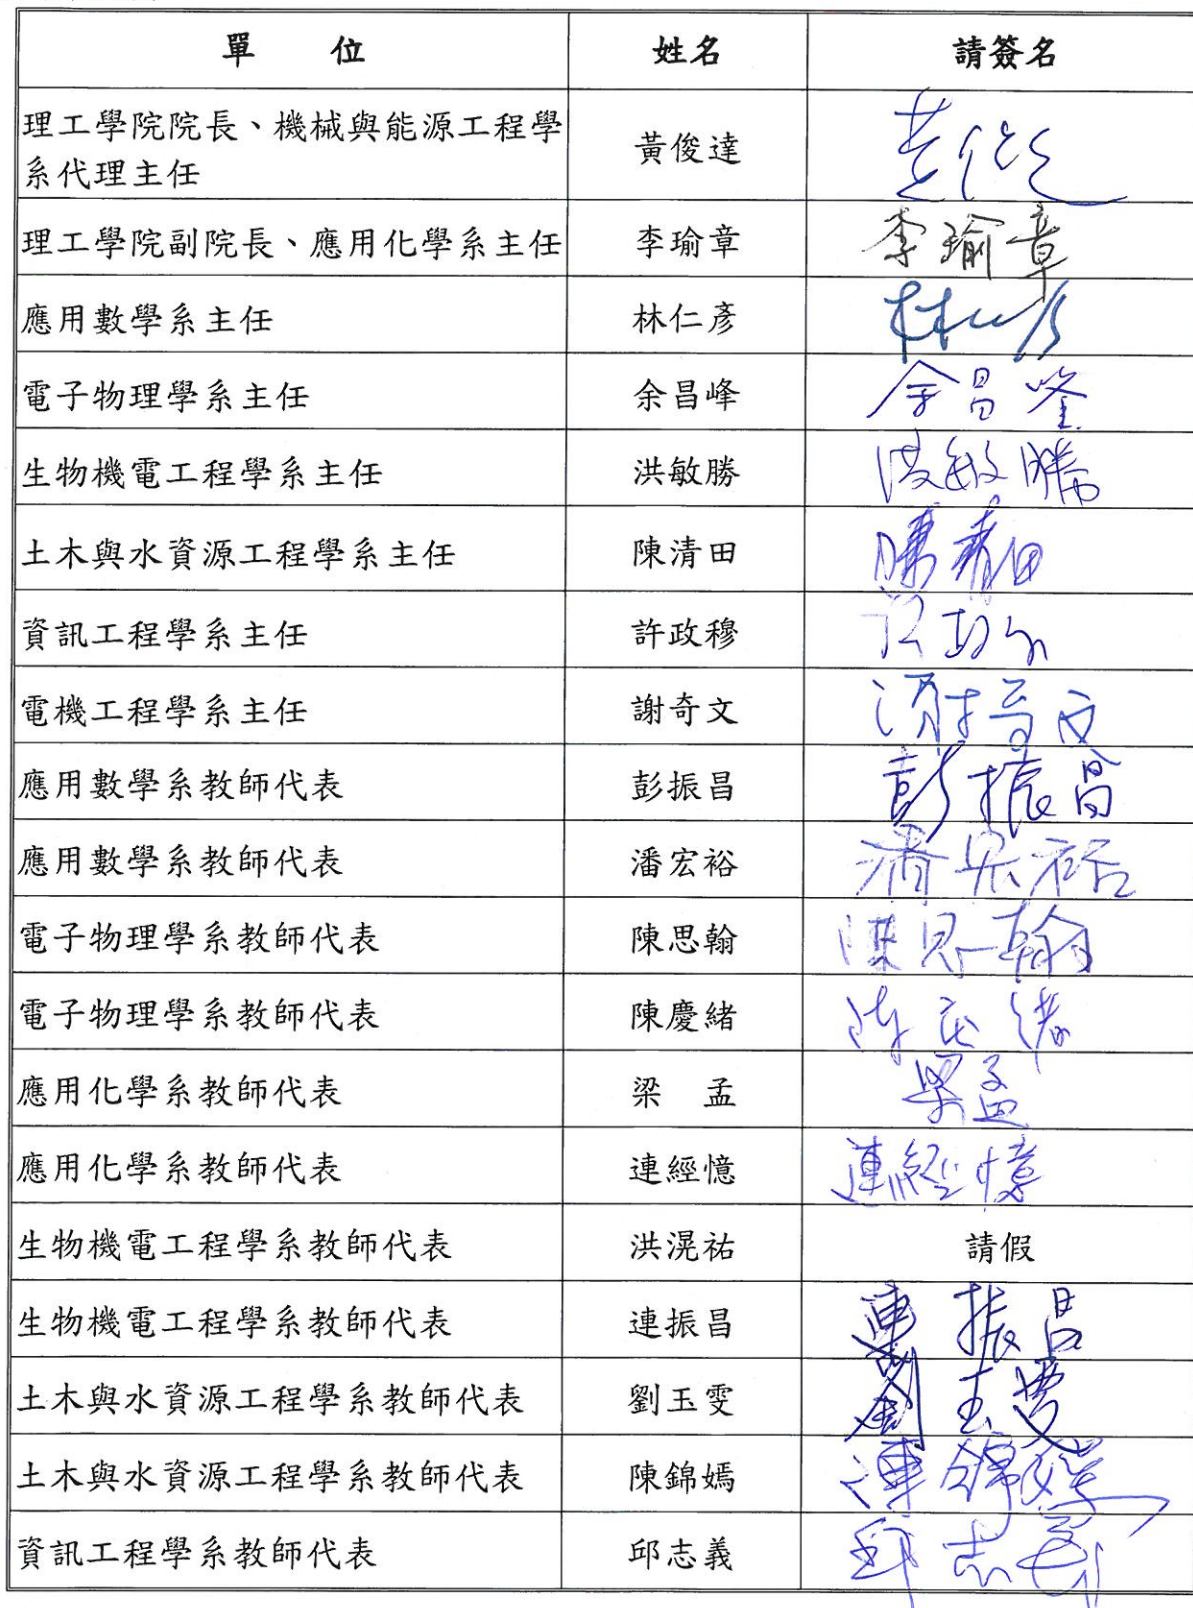 單 位 姓名 請簽名
理工學院院長、機械與能源工程學
系代理主任 黃俊達
理工學院副院長、應用化學系主任 李瑜章 李瑜章
應用數學系主任 林仁彥
電子物理學系主任 余昌峰 余昌峰
生物機電工程學系主任 洪敏勝 洪敏勝
土木與水資源工程學系主任 陳清田 陳清田
資訊工程學系主任 許政穆
電機工程學系主任 謝奇文 謝奇文
應用數學系教師代表 彭振昌 彭振昌
應用數學系教師代表 潘宏裕 潘宏裕
電子物理學系教師代表 陳思翰 陳思翰
電子物理學系教師代表 陳慶緒 陳慶緒
應用化學系教師代表 梁 孟 梁孟
應用化學系教師代表 連經憶 連經憶
生物機電工程學系教師代表 洪滉祐 請假
生物機電工程學系教師代表 連振昌 連振昌
土木與水資源工程學系教師代表 劉玉雯 劉玉雯
土木與水資源工程學系教師代表 陳錦嫣 陳錦嫣
資訊工程學系教師代表 邱志義 邱志義